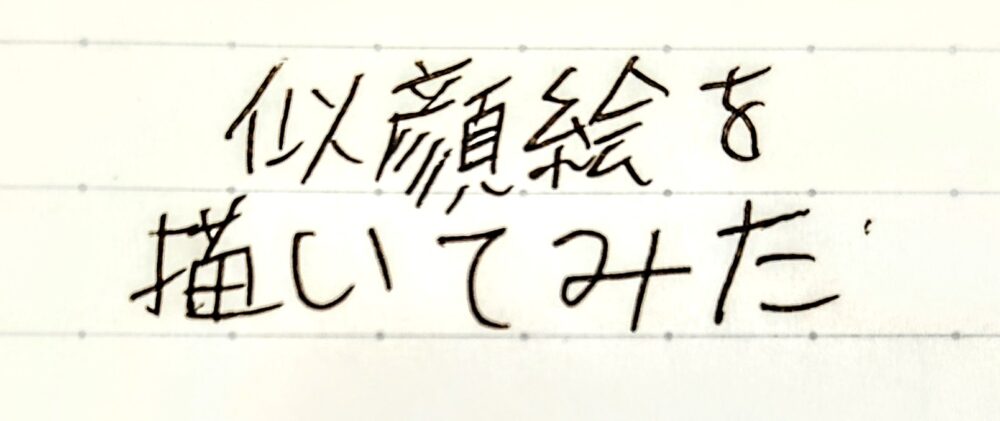 似顔絵を
描いてみた